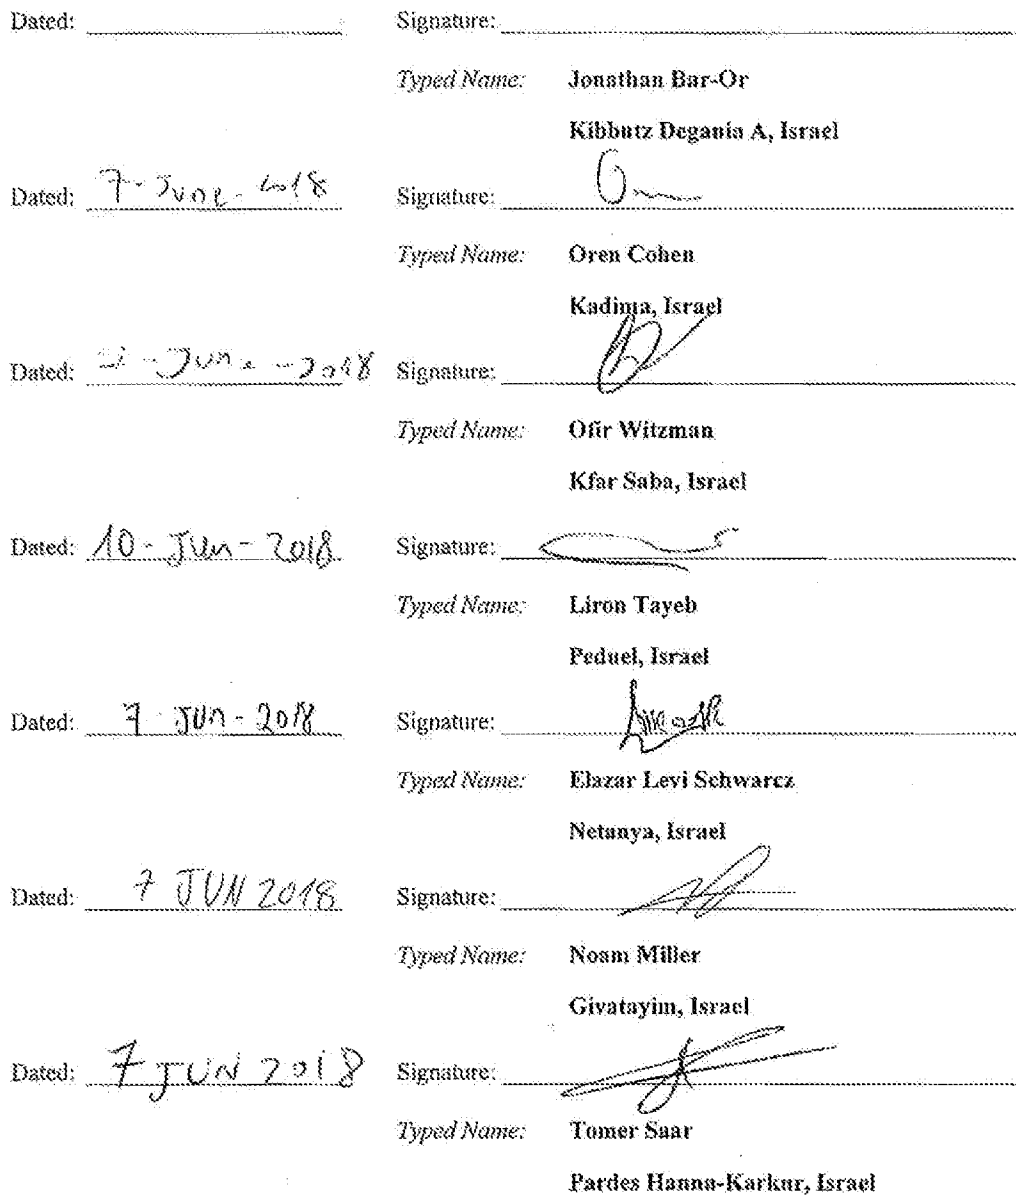 Dated: Signature:
Typed Name: Jonathan Bar-Or
Kibbutz Degania A, Israel
Dated: 7-June-2018 Signature:
Typed Name: Oren Cohen
Kadima, Israel
Dated: -June-2018 Signature:
Typed Name: Ofir Witzman
Kfar Saba, Israel
Dated: 10-Jun-2018 Signature:
Typed Name: Liron Tayeb
Peduel, Israel
Dated: 7-JUN-2018 Signature:
Typed Name: Elazar Levi Schwarcz
Netanya, Israel
Dated: 7 JUN 2018 Signature:
Typed Name: Noam Miller
Givatayim, Israel
Dated: 7 JUN 2018 Signature:
Typed Name: Tomer Saar
Pardes Hanna-Karkur, Israel